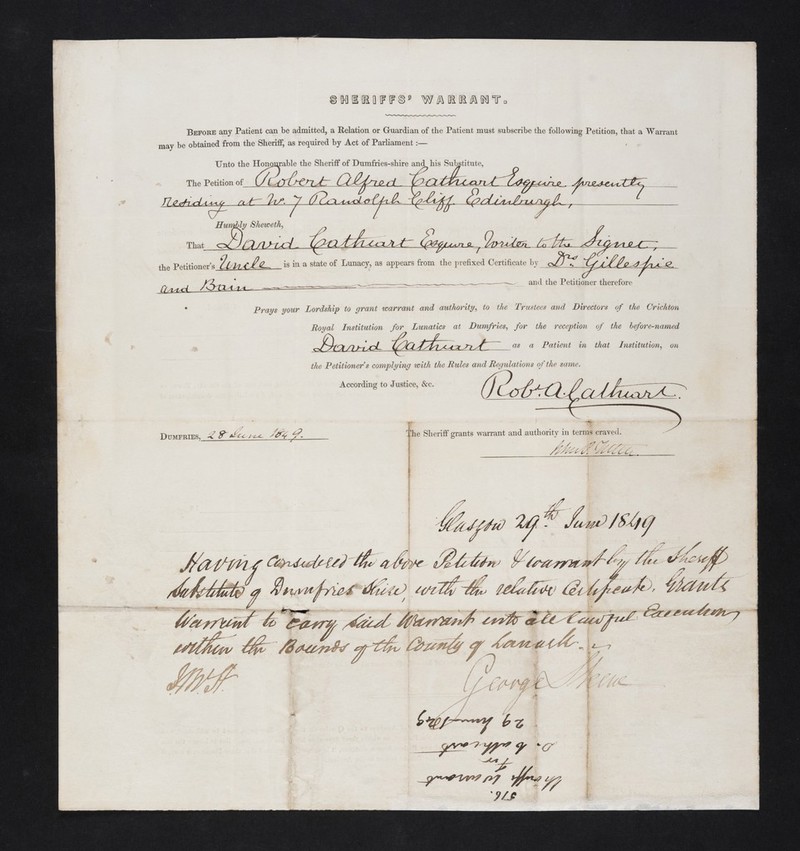 SHERIFFS' WARRANT.
BEFORE any Patient can be admitted, a Relation or Guardian of the Patient must subscribe the following Petition, that a Warrant
may be obtained from the Sheriff, as required by Act of Parliament :—
Unto the Honourable the Sheriff of Dumfries-shire and his Substitute,
The Petition of Robert Alfred Cathcart Esquire presently
residing at No. 7 Randolph Cliff Edinburgh,
Humbly Sheweth,
That David Cathcart Esquire, Writer to the Signet,
the Petitioner's Uncle is in a state of Lunacy, as appears from the prefixed Certificate by Drs. Gillespie
and Bain and the Petitioner therefore
Prays your Lordship to grant warrant and authority, to the Trustees and Directors of the Crichton
Royal Institution for Lunatics at Dumfries, for the reception of the before-named
David Cathcart as a Patient in that Institution, on
the Petitioner's complying with the Rules and Regulations of the same.
According to Justice, &c.
Robt. A. Cathcart.
DUMFRIES, 28 June 1849.
The Sheriff grants warrant and authority in terms craved.
Glasgow 29th June 1849
Having considered the above Petition & warrant by the Sheriff
Substitute of Dumfries Shire, with the relative Certificate, Grants
Warrant to carry said Warrant into all lawful Execution
within the Bounds of the County of Lanark.
George Skene
516.
Sheriff's Warrant
for
D. Cathcart
29 June 1849